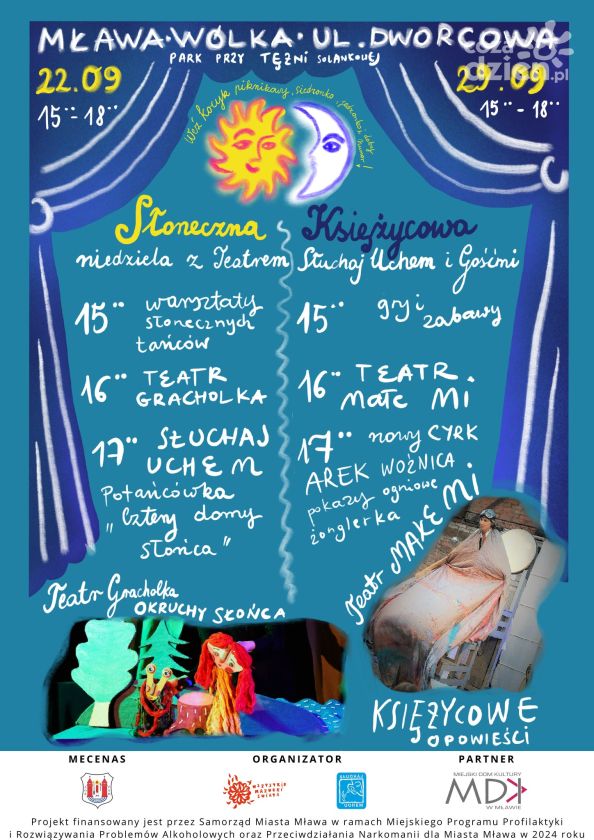 MŁAWA·WÓLKA·UL.DWORCOWA
PARK PRZY TĘŻNI SOLANKOWEJ
22.09
15°°-18°°
29.09
15°°-18°°
co za
dzień.pl
Weź kocyk piknikowy, siedzonko i dobry humor!
Słoneczna
niedziela z Teatrem
15°° warsztaty
słonecznych
tańców
16°° TEATR
GRACHOLKA
17°° SŁUCHAJ
UCHEM
Potańcówka
"Cztery domy
słońca"
Księżycowa
Słuchaj Uchem i Gośćmi
15°° gry i
zabawy
16°° TEATR.
Małe MI
17°° nowy CYRK
AREK WOŹNICA
pokazy ogniowe
żonglerka
Teatr Gracholka
OKRUCHY SŁOŃCA
Teatr MAŁE MI
KSIĘŻYCOWE
OPOWIEŚCI
MECENAS
ORGANIZATOR
PARTNER
SŁUCHAJ
UCHEM
MIEJSKI DOM KULTURY
W MŁAWIE
MDK
Projekt finansowany jest przez Samorząd Miasta Mława w ramach Miejskiego Programu Profilaktyki
i Rozwiązywania Problemów Alkoholowych oraz Przeciwdziałania Narkomanii dla Miasta Mława w 2024 roku